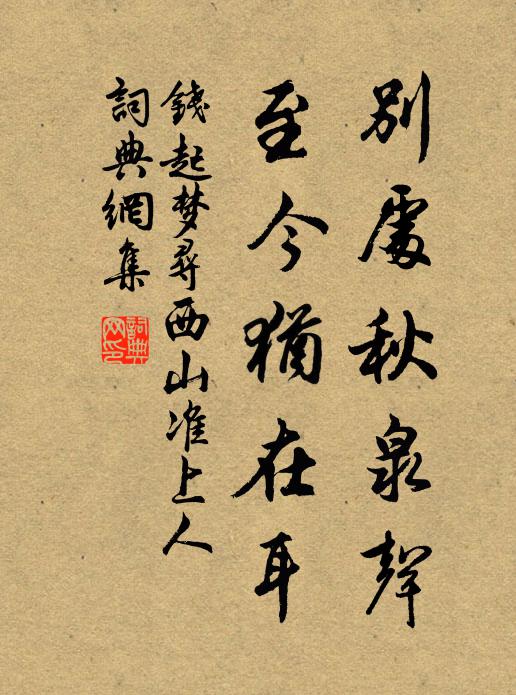 別處秋泉聲
至今猶在耳
錢起梦尋西山准上人
詞典網集
詞典
网印